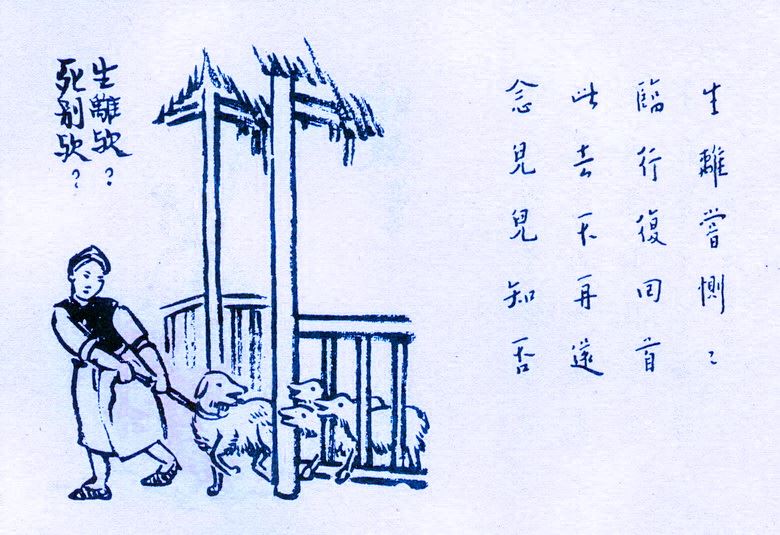 生離嘗惻〻
臨行復回首
此去不再還
念兒兒知否
生離歟？
死別歟？